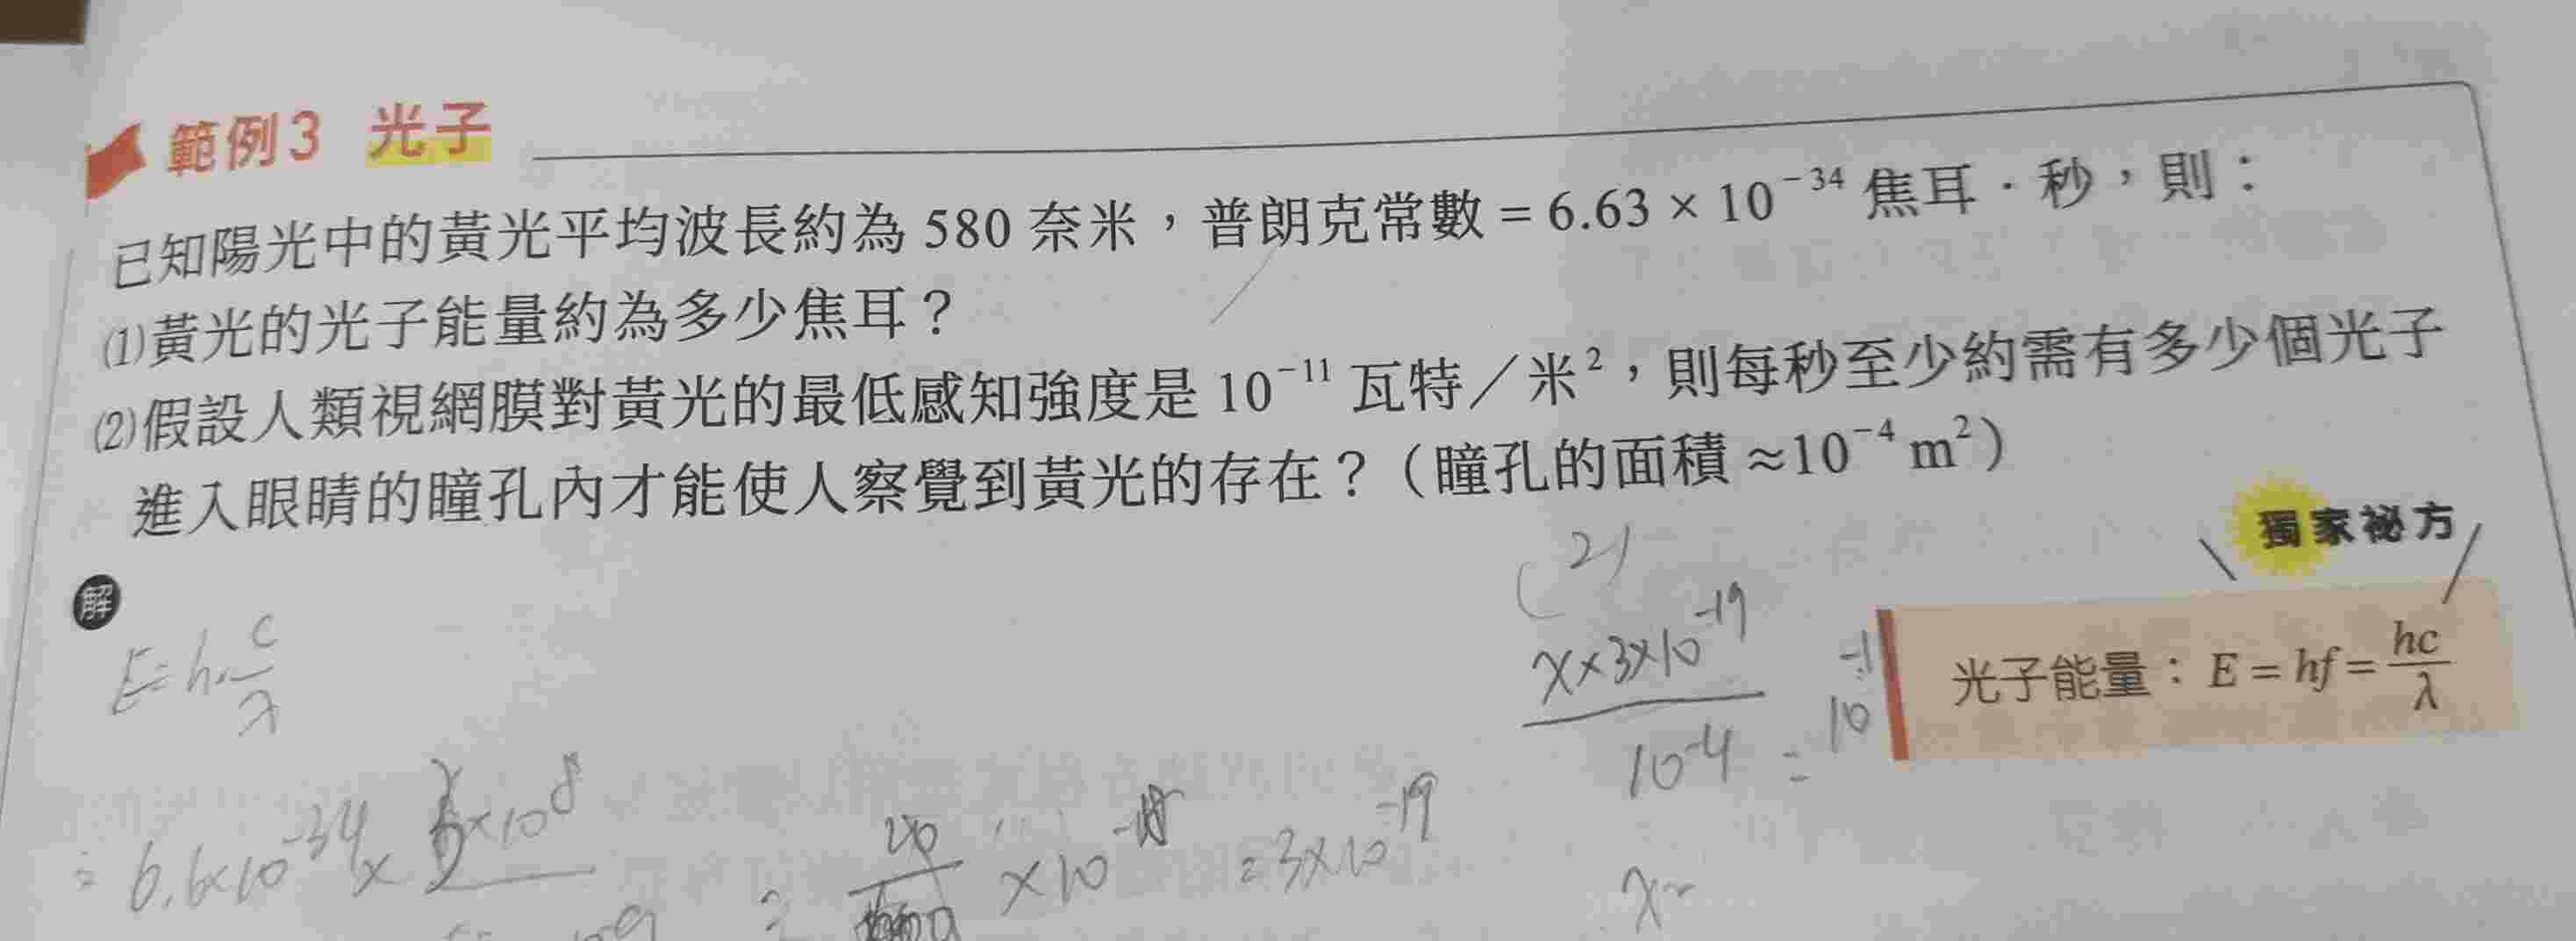 範例3 光子
已知陽光中的黃光平均波長約為 580 奈米，普朗克常數 = 6.63 × 10⁻³⁴ 焦耳・秒，則：
⑴黃光的光子能量約為多少焦耳？
⑵假設人類視網膜對黃光的最低感知強度是 10⁻¹¹ 瓦特／米²，則每秒至少約需有多少個光子
進入眼睛的瞳孔內才能使人察覺到黃光的存在？（瞳孔的面積 ≈10⁻⁴ m²）
獨家祕方
光子能量：E = hf = hc/λ
解
E = h · c/λ
= 6.6×10⁻³⁴ × 3×10⁸
×10
= 3×10⁻¹⁹
(2)
x×3×10⁻¹⁹ / 10⁻⁴ =
x=